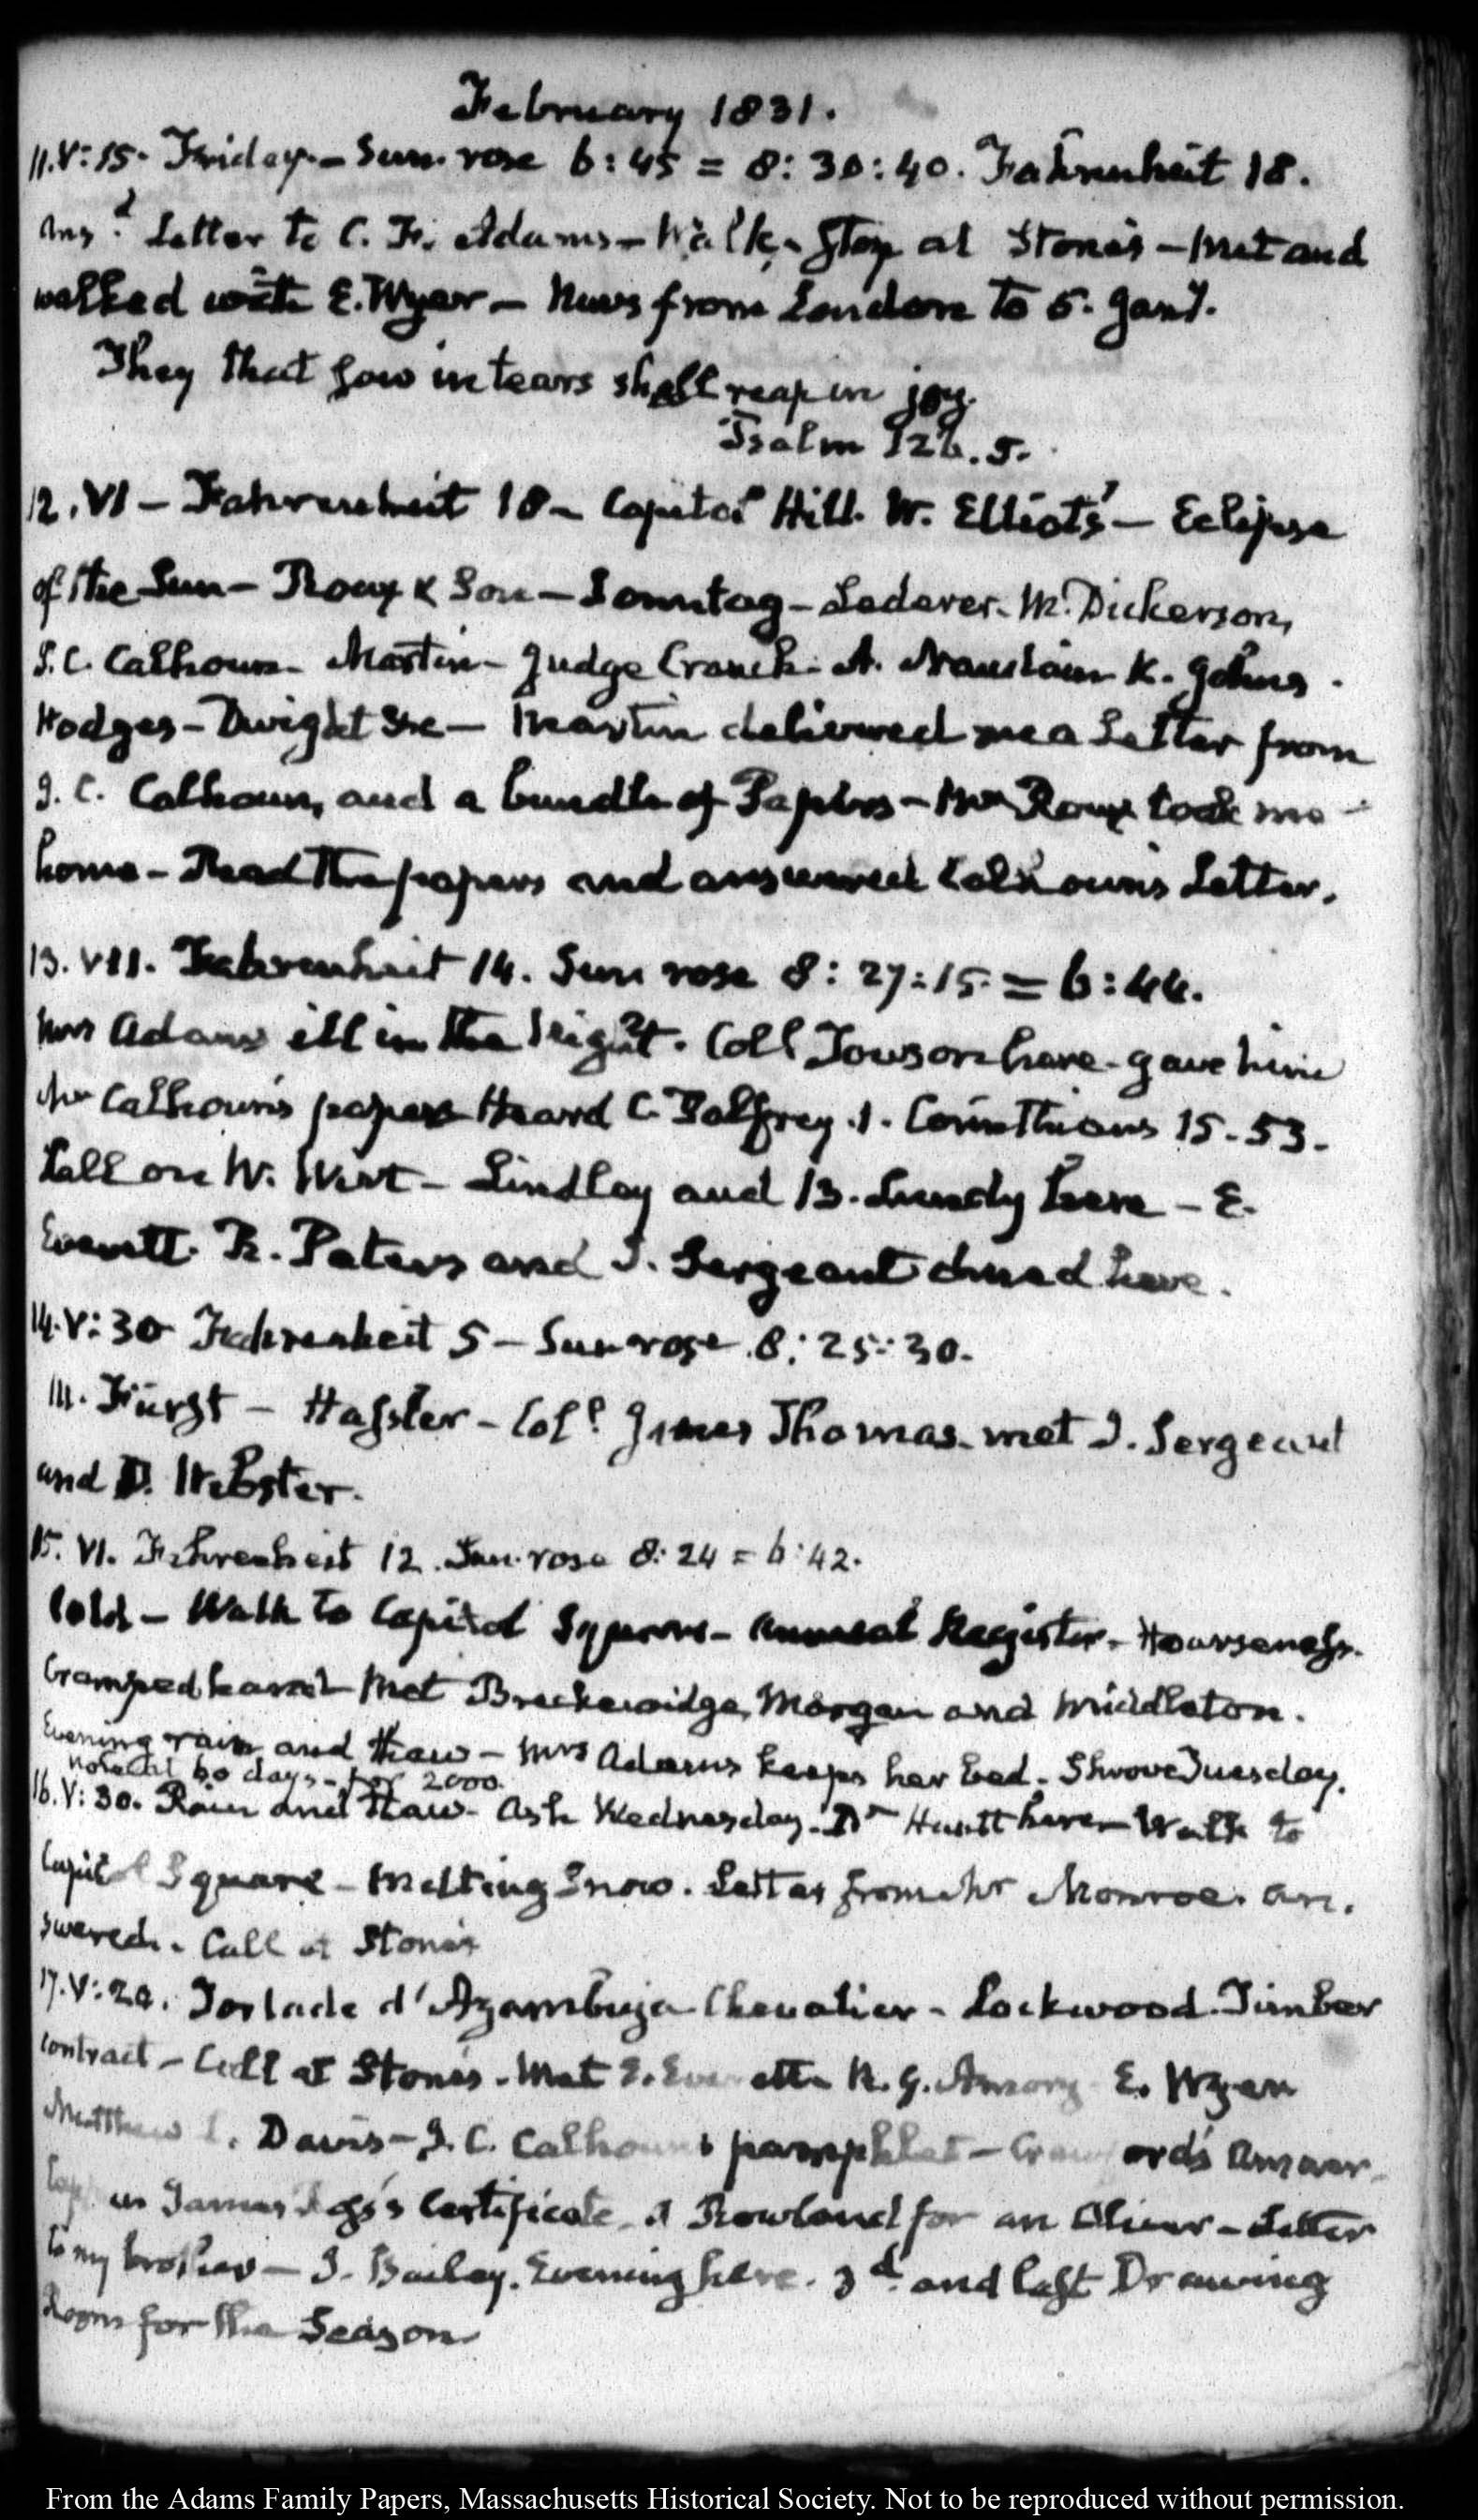 February 1831.
11. V:15. Friday. – Sun rose 6:45 = 8:30:40. Fahrenheit 18.
Ansd. Letter to C. F. Adams – Walk – Stop at Stone's – Met and
walked with E. Wyer – News from London to 5. Jany.
They that sow in tears shall reap in joy.
Psalm 126.5.
12. VI – Fahrenheit 18 – Capitol Hill. W. Elliot's – Eclipse
of the Sun – Roux & Son – Sonntag – Lederer. M. Dickerson,
J. C. Calhoun – Martin – Judge Cranch. A. K. Johns.
Hodges – Dwight &c – Martin delivered me a Letter from
J. C. Calhoun, and a bundle of Papers – Mr Roux took me
home – Read the papers and answered Calhoun's Letter.
13. VII. Fahrenheit 14. Sun rose 8:27:15 = 6:44.
Mrs Adams ill in the Night. Coll Towson here – gave him
Mr Calhoun's papers Heard C. Palfrey. 1. Corinthians 15.53.
Call on W. Wirt – Lindley and B. Lundy here – E.
Everett R. Peters and J. Sergeant dined here.
14. V:30 Fahrenheit 5 – Sun rose 8:25:30.
M. Fürst – Hassler – Coll. James Thomas. met J. Sergeant
and D. Webster.
15. VI. Fahrenheit 12. Sun rose 8:24 = 6:42.
Cold – Walk to Capitol Square – Annual Register – Hoarseness.
Cramped hand – Met Breckenridge, Morgan and Middleton.
Evening rain and thaw – Mrs Adams keeps her bed. Shrove Tuesday.
note at 60 days – for 2000.
16. V:30. Rain and thaw – Ash Wednesday. Dr Huntt here – Walk to
Capitol Square – Melting Snow. Letter from Mr Monroe. an.
swered. Call at Stone's
17. V:20. Torlade d'Azambuja Chevalier – Lockwood. Timber
contract – Call at Stone's. Met E. Everett – R. G. Amory E. Wyer
Matthew L. Davis – J. C. Calhoun's pamphlet – Crawford's Answer.
James Certificate. Rowland for an – Letter
to my brother – J. Bailey. Evening here. 3d. and last Drawing
Room for the Season
From the Adams Family Papers, Massachusetts Historical Society. Not to be reproduced without permission.